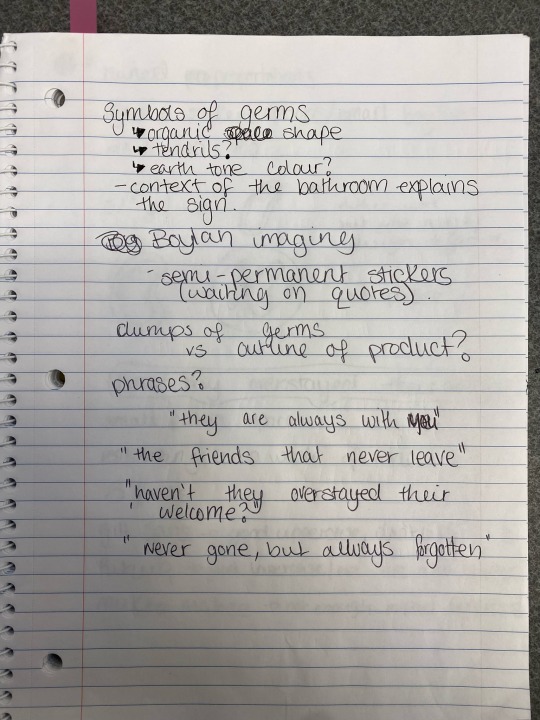 Symbols of germs
↳ organic shape
↳ tendrils?
↳ earth tone colour?
- context of the bathroom explains
the sign.
Boylan imaging
- semi-permanent stickers
(waiting on quotes).
clumps of germs
vs outline of product?
phrases?
"they are always with you"
"the friends that never leave"
"haven't they overstayed their
welcome?"
"never gone, but always forgotten"